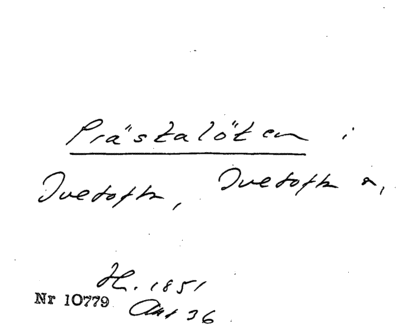 Prästalöten i
Ivetofta, Ivetofta s,
H. 1851
Nr 10779 Akt 36